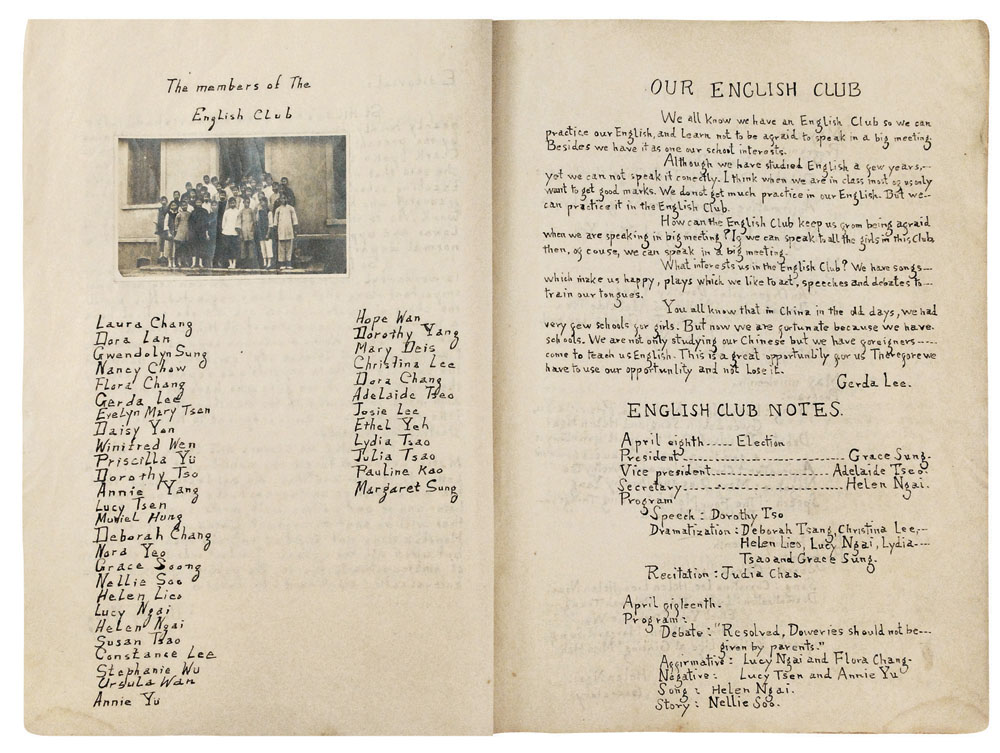 The members of The
English Club
Laura Chang
Dora Lan
Gwendolyn Sung
Nancy Chow
Flora Chang
Gerda Lee
Evelyn Mary Tsen
Daisy Yen
Winifred Wen
Priscilla Yü
Dorothy Tso
Annie Yang
Lucy Tsen
Muriel Hung
Deborah Chang
Nora Yeo
Grace Soong
Nellie Soo
Helen Lieo
Lucy Ngai
Helen Ngai
Susan Tsao
Constance Lee
Stephanie Wu
Ursula Wan
Annie Yu
Hope Wan
Dorothy Yang
Mary Deis
Christina Lee
Dora Chang
Adelaide Tseo
Josie Lee
Ethel Yeh
Lydia Tsao
Julia Tsao
Pauline Kao
Margaret Sung
OUR ENGLISH CLUB
We all know we have an English Club so we can
practice our English, and learn not to be afraid to speak in a big meeting.
Besides we have it as one our school interests.
Although we have studied English a few years,--
yet we can not speak it correctly. I think when we are in class most of us only
want to get good marks. We do not get much practice in our English. But we--
can practice it in the English Club.
How can the English Club keep us from being afraid
when we are speaking in big meeting? If we can speak to all the girls in this Club,
then, of couse, we can speak in a big meeting.
What interests us in the English Club? We have songs--
which make us happy, plays which we like to act, speeches and debates to--
train our tongues.
You all know that in China in the old days, we had
very few schools for girls. But now we are fortunate because we have
schools. We are not only studying our Chinese but we have foreigners----
come to teach us English. This is a great opportunity for us Therefore we
have to use our opportunity and not lose it.
Gerda Lee.
ENGLISH CLUB NOTES.
April eighth..... Election
President------------------------Grace Sung.
Vice president-----------------Adelaide Tseo.
Secretary------------------------Helen Ngai.
Program
Speech : Dorothy Tso
Dramatization : Deborah Tsang, Christina Lee,--
Helen Lieo, Lucy Ngai, Lydia---
Tsao and Grace Sung.
Recitation : Judia Chao.
April
Program :
Debate : "Resolved, Doweries should not be---
given by parents."
Affirmative : Lucy Ngai and Flora Chang.
Negative : Lucy Tsen and Annie Yu
Song : Helen Ngai.
Story : Nellie Soo.